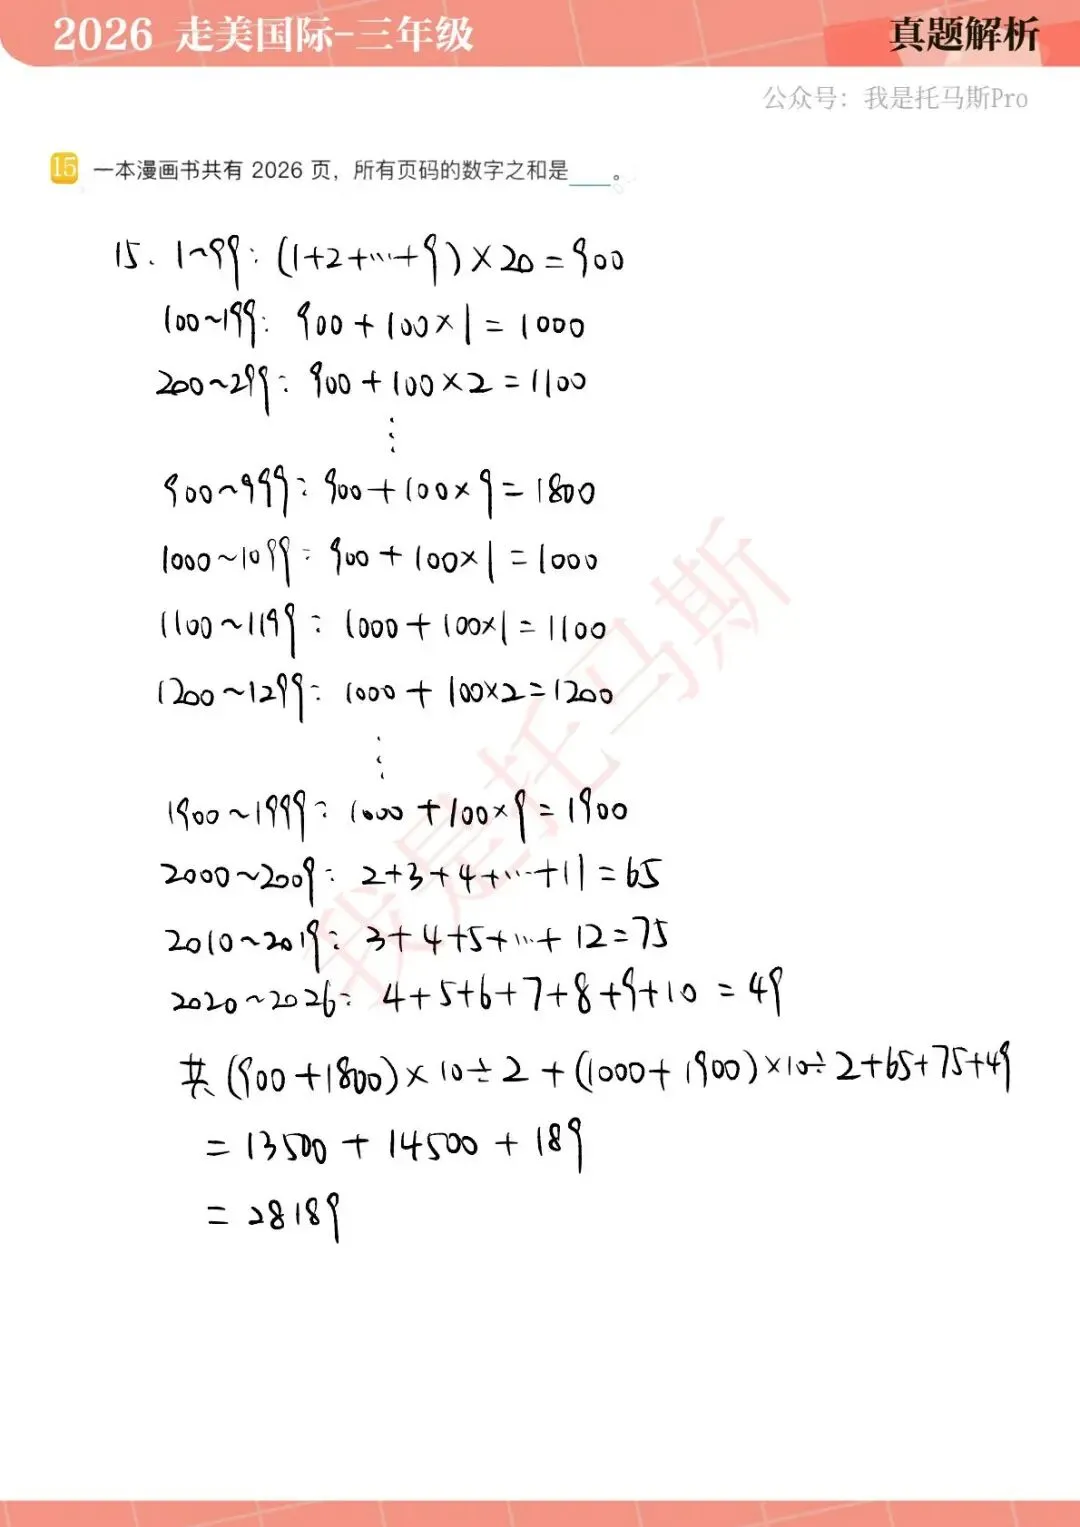 2026 走美国际-三年级
真题解析
公众号：我是托马斯Pro
15 一本漫画书共有 2026 页，所有页码的数字之和是____。
15. 1~99: (1+2+…+9)×20=900
100~199: 900+100×1=1000
200~299: 900+100×2=1100
⋮
900~999: 900+100×9=1800
1000~1099: 900+100×1=1000
1100~1199: 1000+100×1=1100
1200~1299: 1000+100×2=1200
⋮
1900~1999: 1000+100×9=1900
2000~2009: 2+3+4+…+11=65
2010~2019: 3+4+5+…+12=75
2020~2026: 4+5+6+7+8+9+10=49
共(900+1800)×10÷2+(1000+1900)×10÷2+65+75+49
=13500+14500+189
=28189
我是托马斯